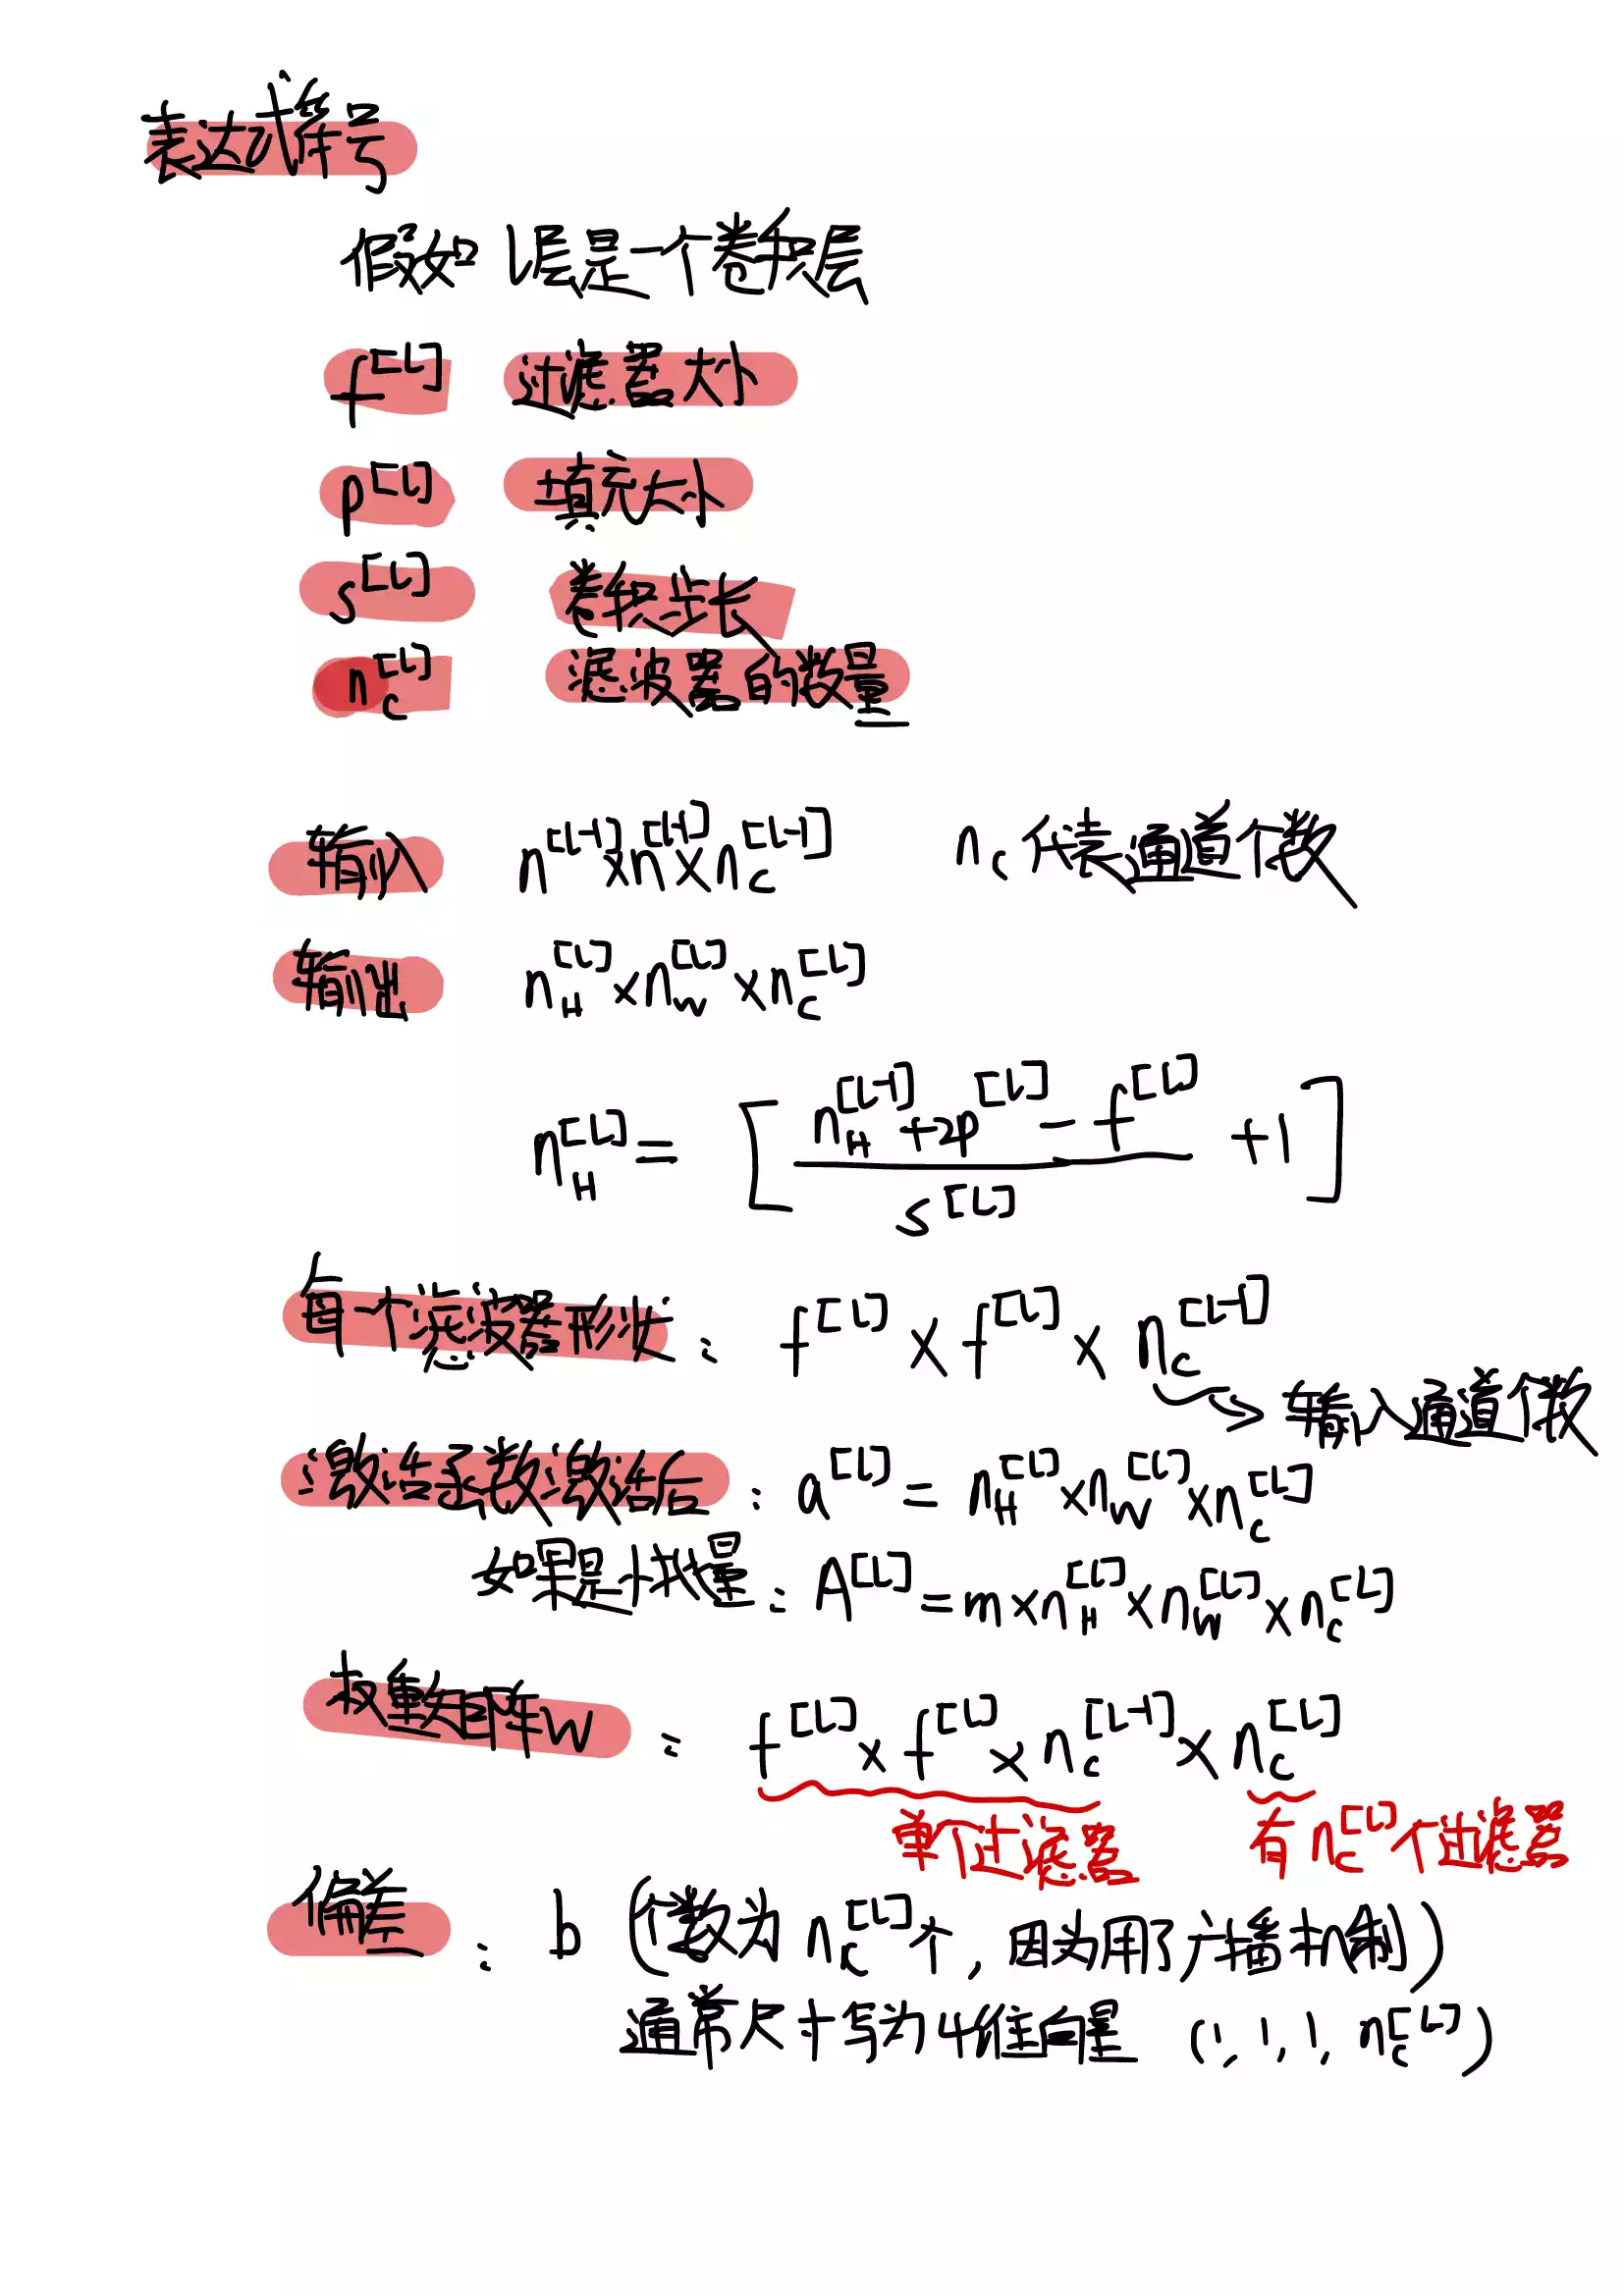 表达式符号
假如 l层是一个卷积层
f^[l] 过滤器大小
p^[l] 填充大小
s^[l] 卷积步长
n_c^[l] 滤波器的数量
输入 n^[l-1]×n^[l-1]×n_c^[l-1] n_c代表通道个数
输出 n_H^[l]×n_w^[l]×n_c^[l]
n_H^[l] = [ (n_H^[l-1]+2p^[l]-f^[l]) / s^[l] +1 ]
每一个滤波器形状: f^[l] × f^[l] × n_c^[l-1]
→ 输入通道个数
激活函数激活后: a^[l] = n_H^[l]×n_W^[l]×n_c^[l]
如果是小批量: A^[l] = m×n_H^[l]×n_W^[l]×n_c^[l]
权重矩阵W: f^[l]×f^[l]×n_c^[l-1]×n_c^[l]
单个过滤器 有n_c^[l]个过滤器
偏差: b (个数为 n_c^[l]个,因为用了广播机制)
通常尺寸写为4维向量 (1,1,1,n_c^[l])